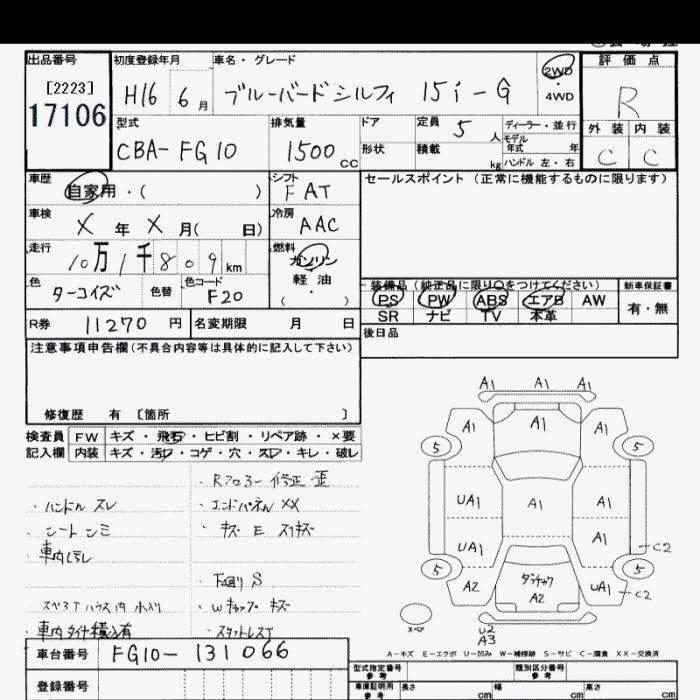 出品番号 初度登録年月 車名・グレード 評価点
[2223]
17106
H16 6月 ブルーバードシルフィ 15i-G 2WD・4WD R
型式 排気量 ドア 定員 5人 ディーラー・並行 外装 内装
CBA-FG10 1500cc 形状 積載 kg モデル年式 年 ハンドル 左・右 C C
車歴 自家用・( ) シフト FAT セールスポイント (正常に機能するものに限ります)
車検 X年X月( 日) 冷房 AAC
走行 10万1千809km 燃料 ガソリン
色 ターコイズ 色替 色コード F20 軽油・( )
装備品 (純正品に限り○をつけてください) 新車保証書
PS PW ABS エアB AW 有・無
SR ナビ TV 本革
R券 11270円 名変期限 月 日 後日品
注意事項申告欄(不具合内容等は具体的に記入して下さい)
修復歴 有 [箇所 ]
検査員 FW キズ・飛石・ヒビ割・リペア跡・×要
記入欄 内装 キズ・汚レ・コゲ・穴・スレ・キレ・破レ
・Rフロアー修正 歪
・ハンドル スレ ・エンドパネル XX
・シート シミ ・キズ E スリキズ
・車内汚レ
・下廻り S
スペアTハウス内 水入り ・Wキャップ キズ
・車内タイヤ積込有 ・スタットレスT
車台番号 FG10-131066
登録番号
A1 A1 A1
A1 A1 A1
5 5
UA1 A1 A1
UA1 A1 C2
5 5
A2 ダンチック A2 UA1 C2
スペア U2
A3
A-キズ E-エクボ U-凹み W-補修跡 S-サビ C-腐食 XX-交換済
型式指定番号 類別区分番号
参考 参考
車庫証明用 長さ 幅 高さ
参考 cm cm cm